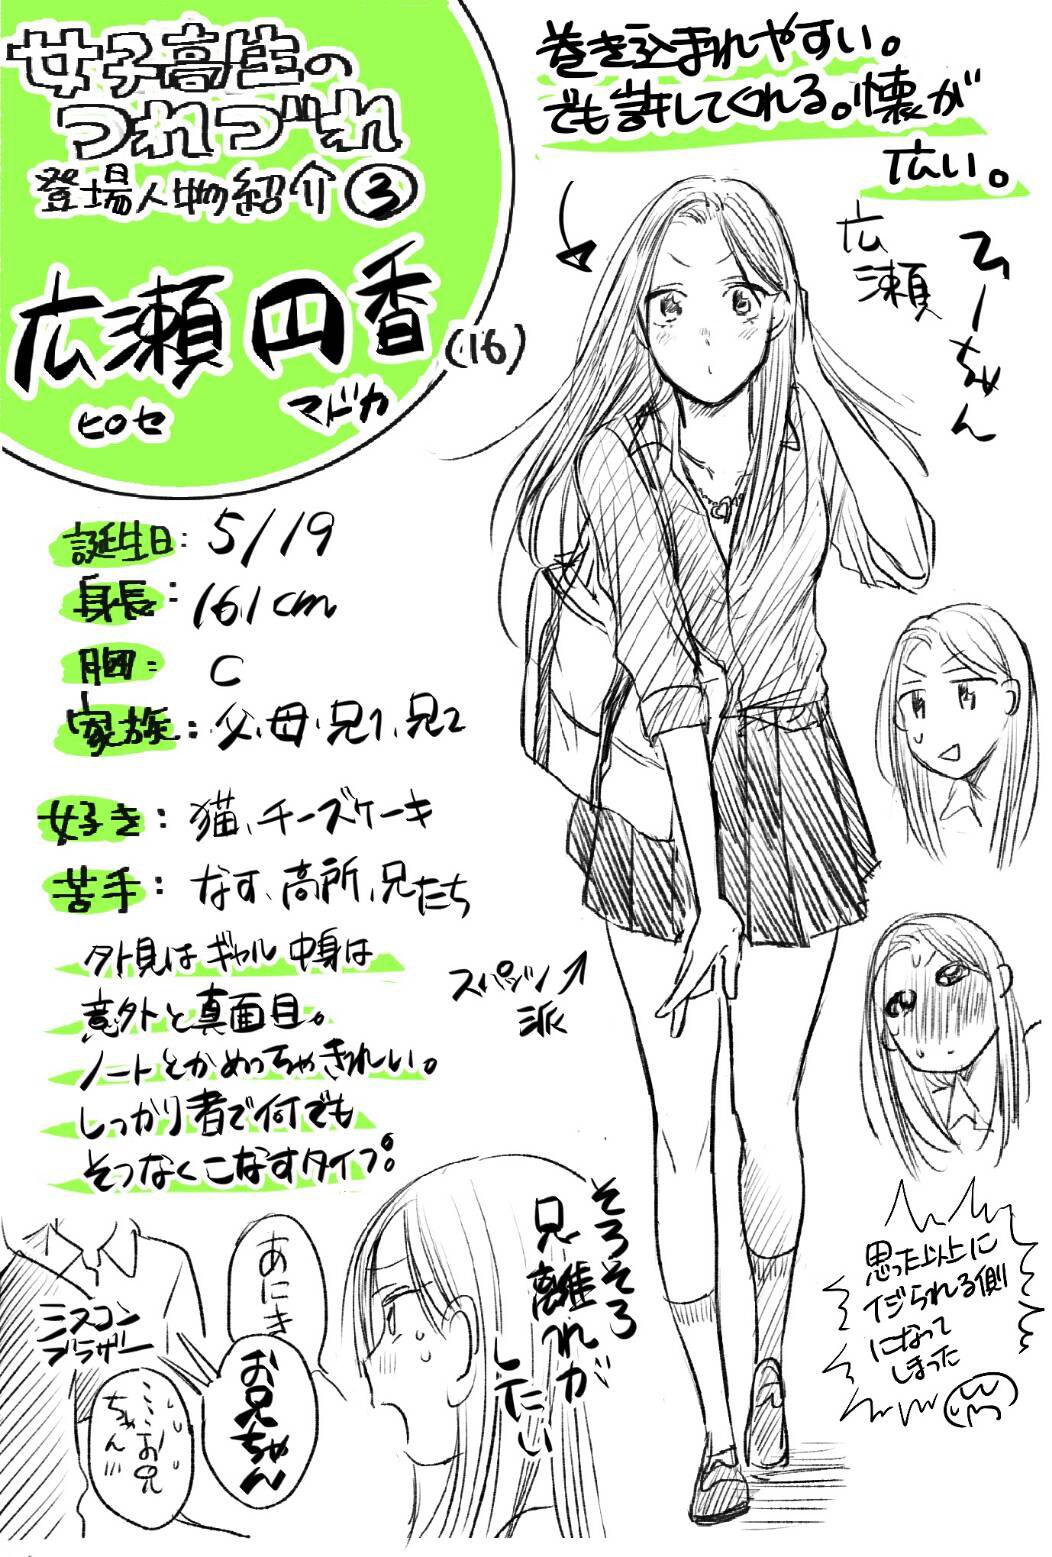 女子高生の
つれづれ
登場人物紹介③
広瀬 円香(16)
ヒロセ マドカ
巻き込まれやすい。
でも許してくれる。懐が
広い。
広瀬
ひーちゃん
誕生日: 5/19
身長: 161cm
胸: C
家族: 父、母、兄1、兄2
好き: 猫、チーズケーキ
苦手: なす、高所、兄たち
外見はギャル 中身は
意外と真面目。
ノートとかめっちゃきれい。
しっかり者で何でも
そつなくこなすタイプ。
スパッツ↑
派
思った以上に
イジられる側
になって
しまった
そろそろ
兄離れが
したい
あにき
お兄ちゃん
……お兄
ちゃん…
ミスコン
ブラザー